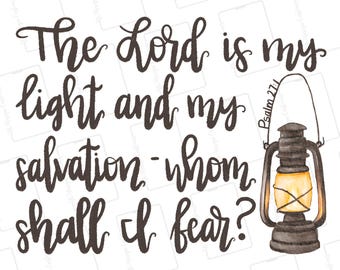 The Lord is my
light and my
salvation - whom
shall I fear?
Psalm 27:1